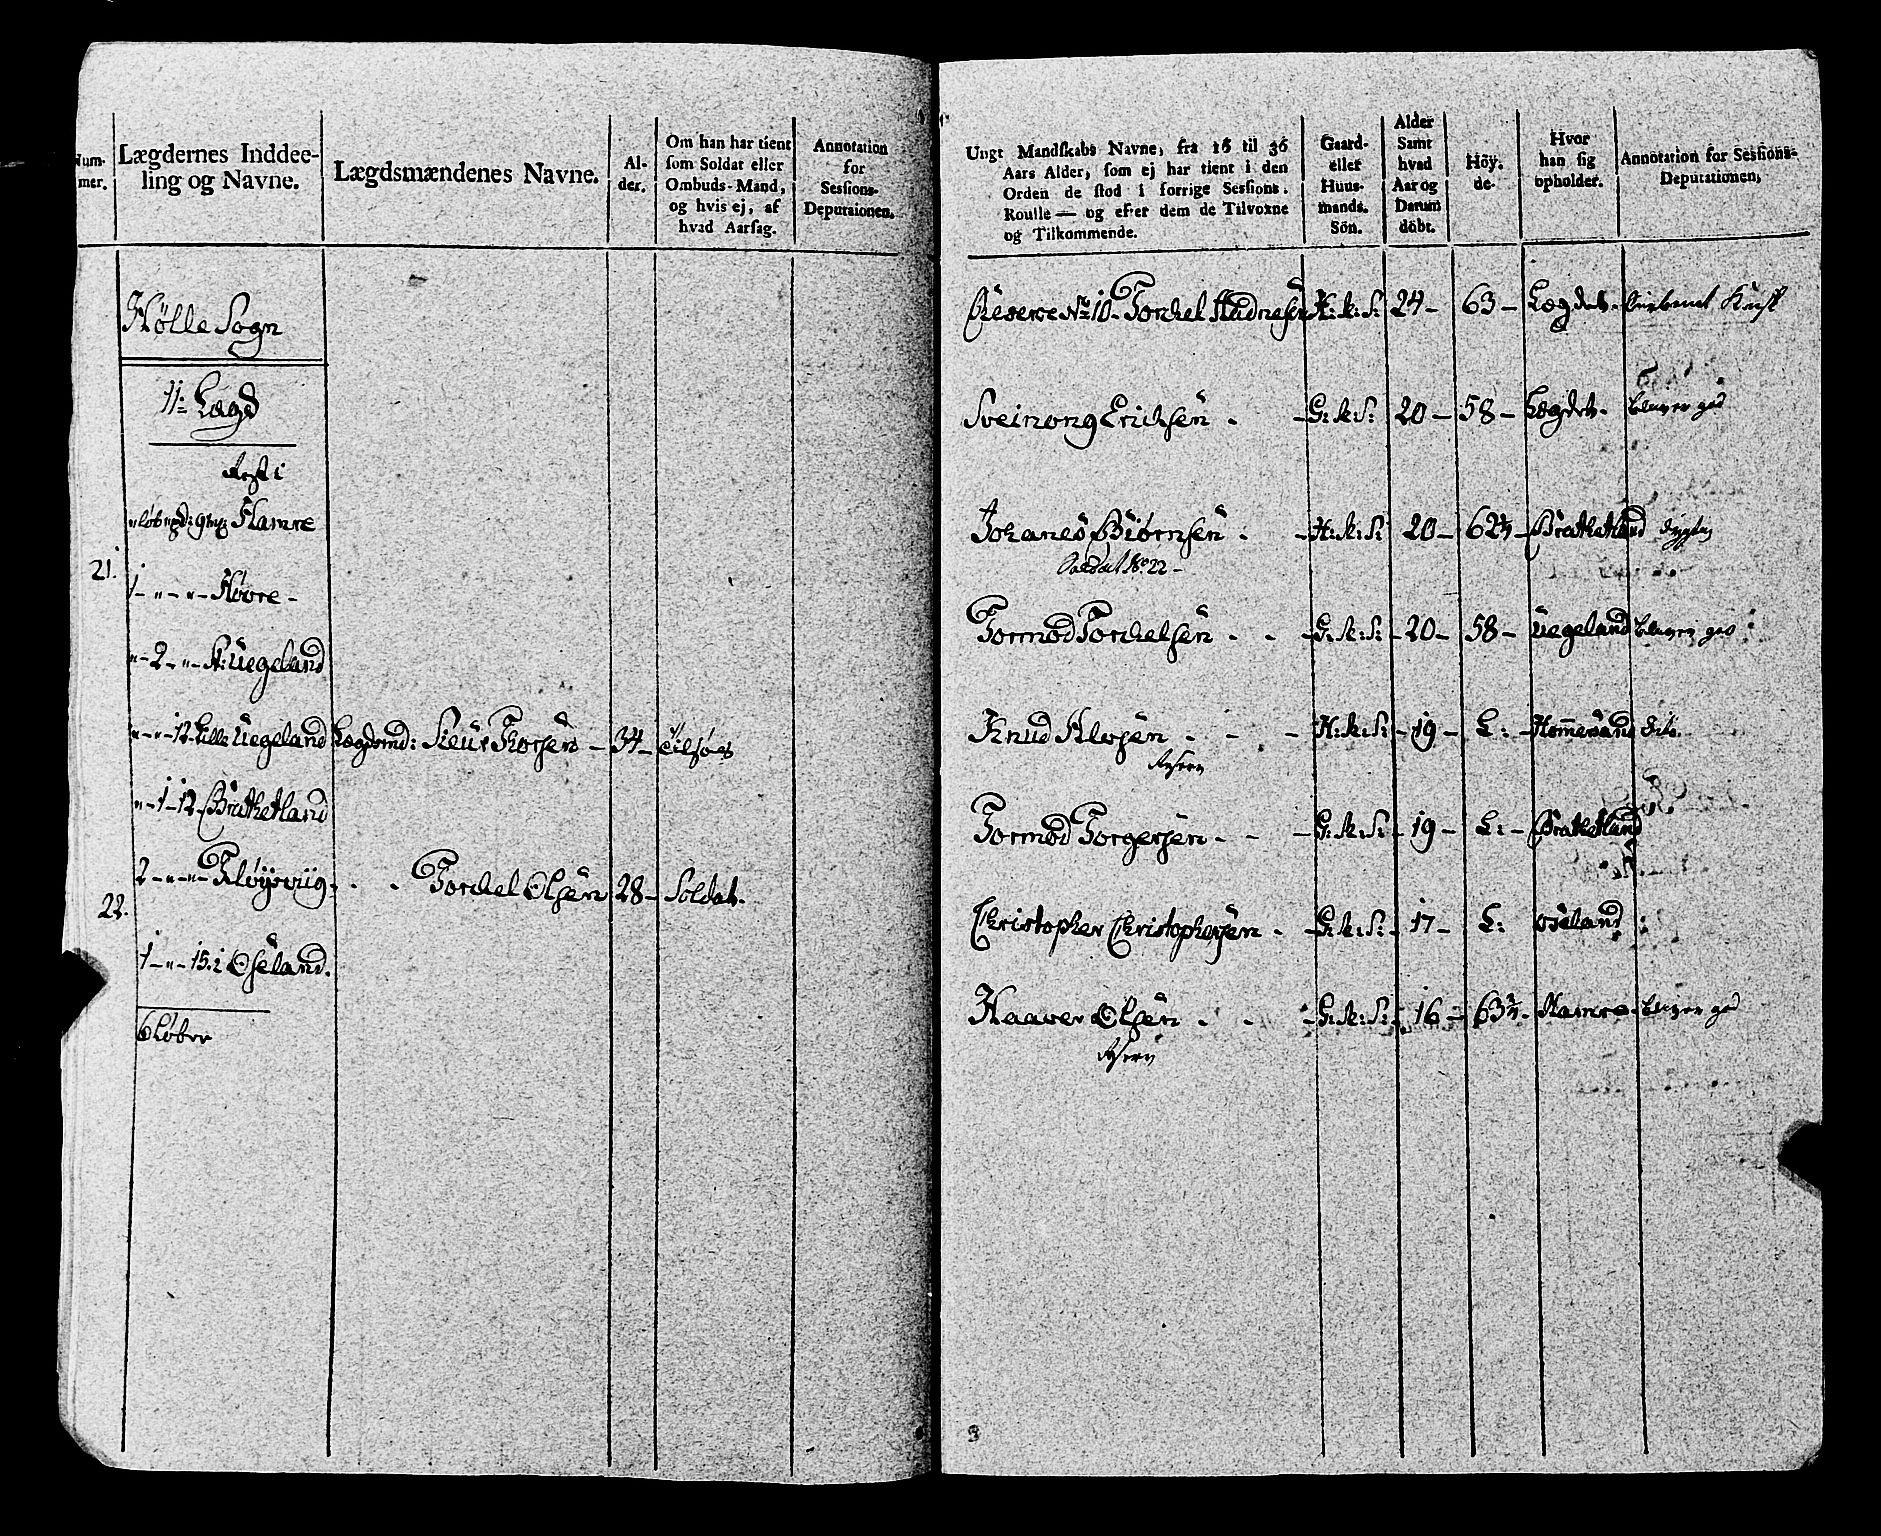 Num-
mer.
Lægdernes Inddee-
ling og Navne.
Lægdsmændenes Navne.
Al-
der.
Om han har tient
som Soldat eller
Ombuds-Mand,
og hvis ej, af
hvad Aarsag.
Annotation
for
Sessions-
Deputaionen.
Hølle Sogn
11: Lægd
21.
Hamre
1 - " - " - Høvre -
" - 2 - " - St: Uegeland
" - " - 12 Lille Uegeland Lægdsmd: Siur Thorsen - 34 -
" - 1 - 12 Brathetland
2 - " - " - Fløysviig - - Torchel Olsen 28 - Soldat.
22.
1 - " - 15. i Øseland.
6 Løber
Ungt Mandskabs Navne, fra 16 til 36
Aars Alder, som ej har tient i den
Orden de stod i forrige Sessions-
Roulle — og efter dem de Tilvoxne
og Tilkommende.
Gaard-
eller
Huus-
mands-
Sön.
Alder
Samt
hvad
Aar og
Datum
döbt.
Höy-
de.
Hvor
han sig
opholder.
Annotation for Sessions-
Deputationen,
Reserve No 10 - Torchel Hadnesen H: M: S: 24 - 63 - Lægdet.
Sveinong Erichsen - - G: M: S: 20 - 58 - Lægdet.
Johanes Biørnsen - - H: M: S: 20 - 62 Brathetland dygtig
Soldat No 22 -
Tormod Torchelsen - - G: M: S: - 20 - 58 - Uegeland
Knud Alvsen - - - H: M: S: - 19 - L: - Hommesand dito.
Reserv
Tormod Torgersen - - G: M: S: - 19 - L: - Brathetland
Christopher Christophersen - G: M: S: - 17 - L: Øseland
Haaver Olsen - - G: M: S: - 16 - 63 Hamre
Reserv
3